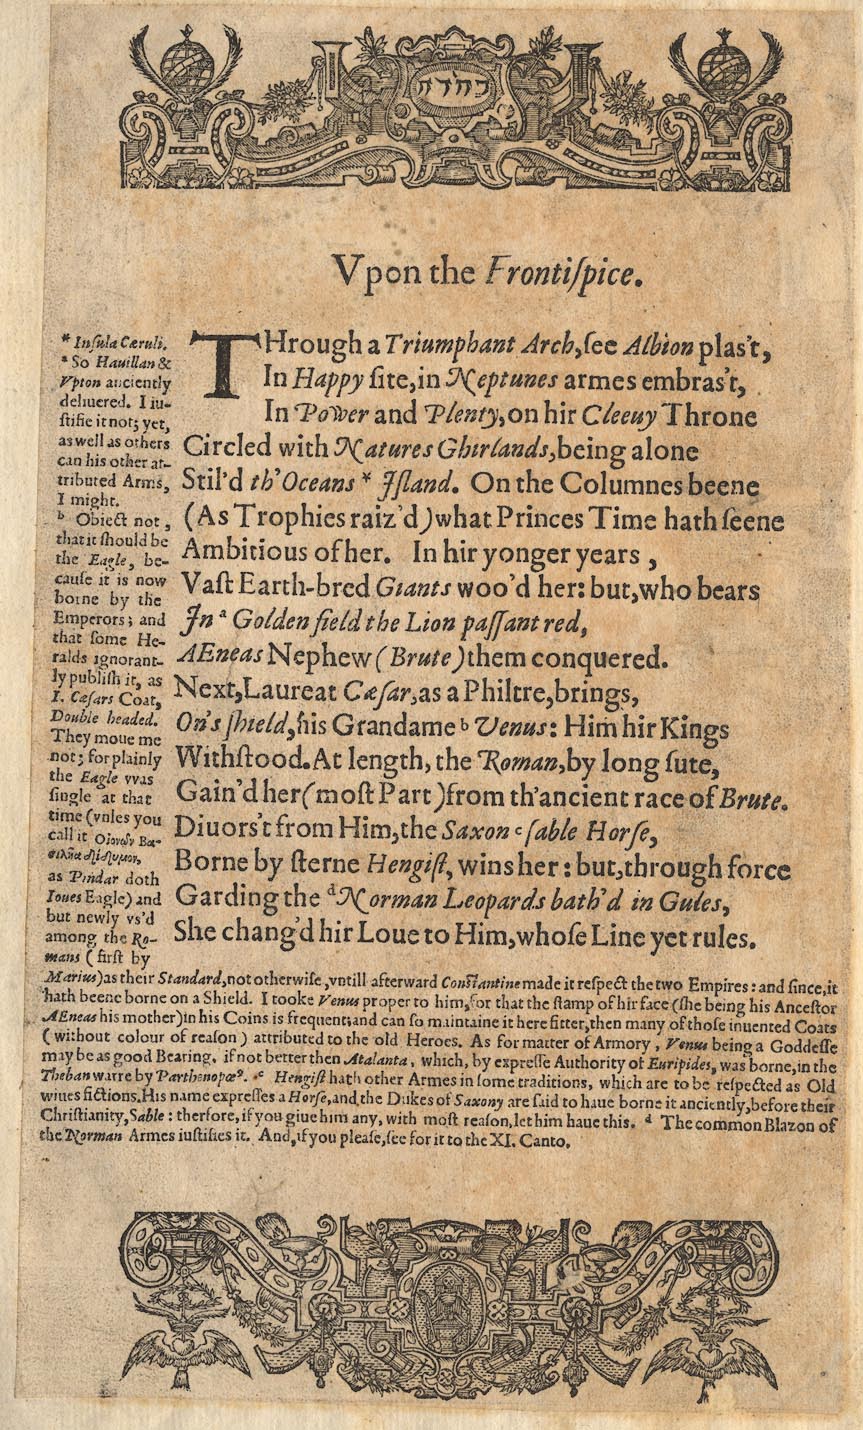 Vpon the Frontiſpice.
THrough a Triumphant Arch, ſee Albion plas't,
In Happy ſite, in Neptunes armes embras't,
In Power and Plenty, on hir Cleeuy Throne
Circled with Natures Ghirlands, being alone
Stil'd th' Oceans * Iſland. On the Columnes beene
(As Trophies raiz'd) what Princes Time hath ſeene
Ambitious of her. In hir yonger years,
Vaſt Earth-bred Giants woo'd her: but, who bears
In ᵃ Golden field the Lion paſſant red,
AEneas Nephew (Brute) them conquered.
Next, Laureat Cæſar, as a Philtre, brings,
On's ſhield, his Grandame ᵇ Venus: Him hir Kings
Withſtood. At length, the Roman, by long ſute,
Gain'd her (moſt Part) from th'ancient race of Brute.
Diuors't from Him, the Saxon ᶜ ſable Horſe,
Borne by ſterne Hengiſt, wins her: but, through force
Garding the ᵈ Norman Leopards bath'd in Gules,
She chang'd hir Loue to Him, whoſe Line yet rules.
* Inſula Cæruli.
ᵃ So Hauillan &
Vpton anciently
deliuered. I iu-
ſtifie it not; yet,
as well as others
can his other at-
tributed Arms,
I might.
ᵇ Obiect not,
that it ſhould be
the Eagle, be-
cauſe it is now
borne by the
Emperors; and
that ſome He-
ralds ignorant-
ly publiſh it, as
I. Cæſars Coat,
Double headed.
They moue me
not; for plainly
the Eagle vvas
ſingle at that
time (vnles you
call it Βα-
as Pindar doth
Ioues Eagle) and
but newly vs'd
among the Ro-
mans (firſt by
Marius) as their Standard, not otherwiſe, vntill afterward Conſtantine made it reſpect the two Empires: and ſince, it
hath beene borne on a Shield. I tooke Venus proper to him, for that the ſtamp of hir face (ſhe being his Anceſtor
AEneas his mother) in his Coins is frequent; and can ſo maintaine it here fitter, then many of thoſe inuented Coats
(without colour of reaſon) attributed to the old Heroes. As for matter of Armory, Venus being a Goddeſſe
may be as good Bearing, if not better then Atalanta, which, by expreſſe Authority of Euripides, was borne, in the
Theban warre by Parthenopæꝰ. ᶜ Hengiſt hath other Armes in ſome traditions, which are to be reſpected as Old
wiues fictions. His name expreſſes a Horſe, and the Dukes of Saxony are ſaid to haue borne it anciently, before their
Chriſtianity, Sable: therfore, if you giue him any, with moſt reaſon, let him haue this. ᵈ The common Blazon of
the Norman Armes iuſtifies it. And, if you pleaſe, ſee for it to the XI. Canto.